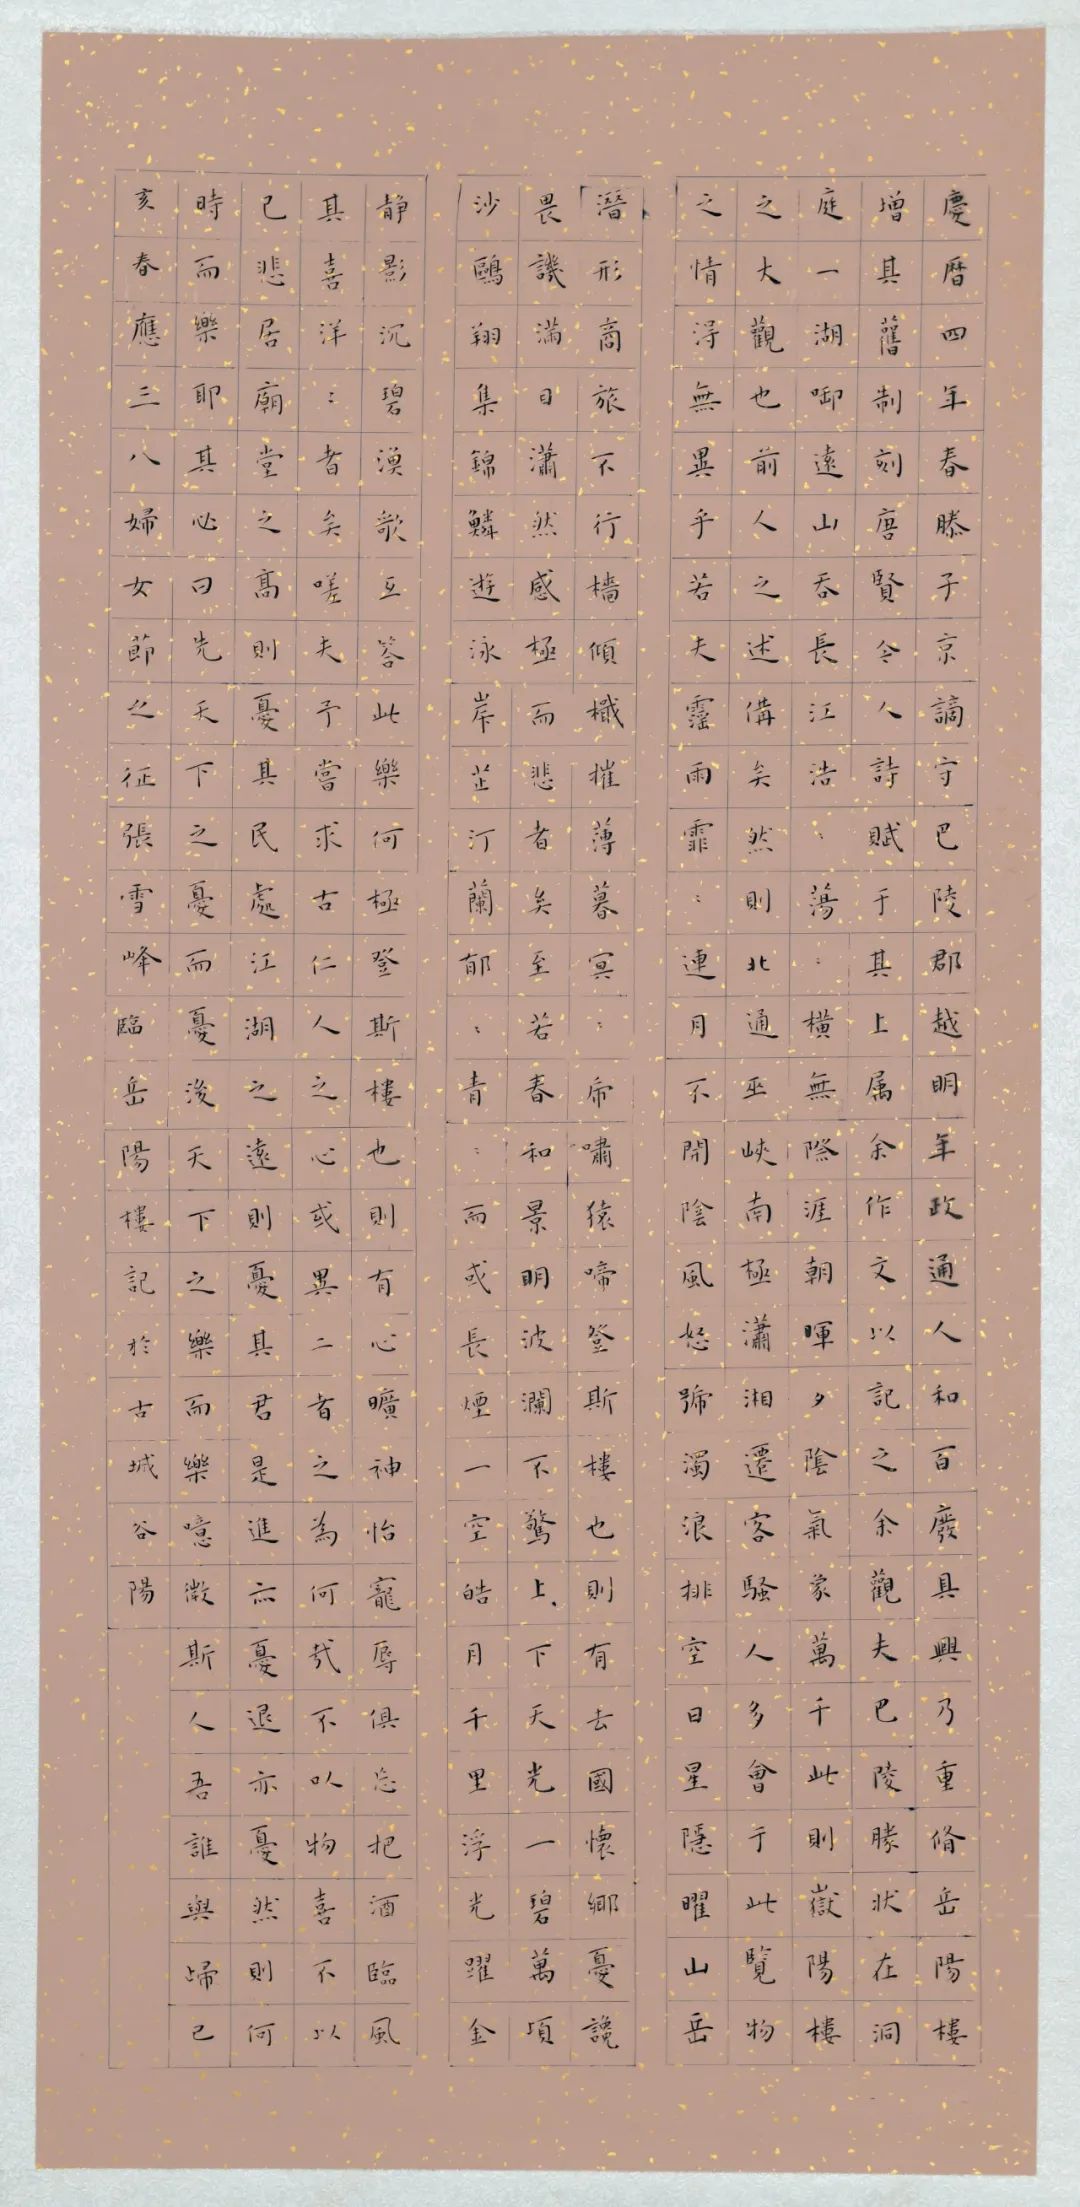 慶暦四年春滕子京謫守巴陵郡越明年政通人和百廢具興乃重脩岳陽樓
增其舊制刻唐賢令人詩賦于其上属余作文以記之余觀夫巴陵勝狀在洞
庭一湖啣遠山吞長江浩：蕩：橫無際涯朝暉夕陰氣象萬千此則嶽陽樓
之大觀也前人之述備矣然則北通巫峽南極瀟湘遷客騷人多會于此覽物
之情淂無異乎若夫霪雨霏：連月不開陰風怒號濁浪排空日星隱曜山岳
潛形商旅不行檣傾檝摧薄暮冥：帍嘯猿啼登斯樓也則有去國懷鄉憂讒
畏譏滿目瀟然感極而悲者矣至若春和景明波瀾不驚上下天光一碧萬頃
沙鷗翔集錦鱗遊泳岸芷汀蘭郁：青：而或長煙一空皓月千里浮光躍金
静影沉碧漁歌互答此樂何極登斯樓也則有心曠神怡寵辱俱忘把酒臨風
其喜洋：者矣嗟夫予嘗求古仁人之心或異二者之為何哉不以物喜不以
己悲居廟堂之高則憂其民處江湖之遠則憂其君是進亦憂退亦憂然則何
時而樂耶其必曰先天下之憂而憂後天下之樂而樂噫微斯人吾誰與歸己
亥春應三八婦女節之征張雪峰臨岳陽樓記於古城谷陽